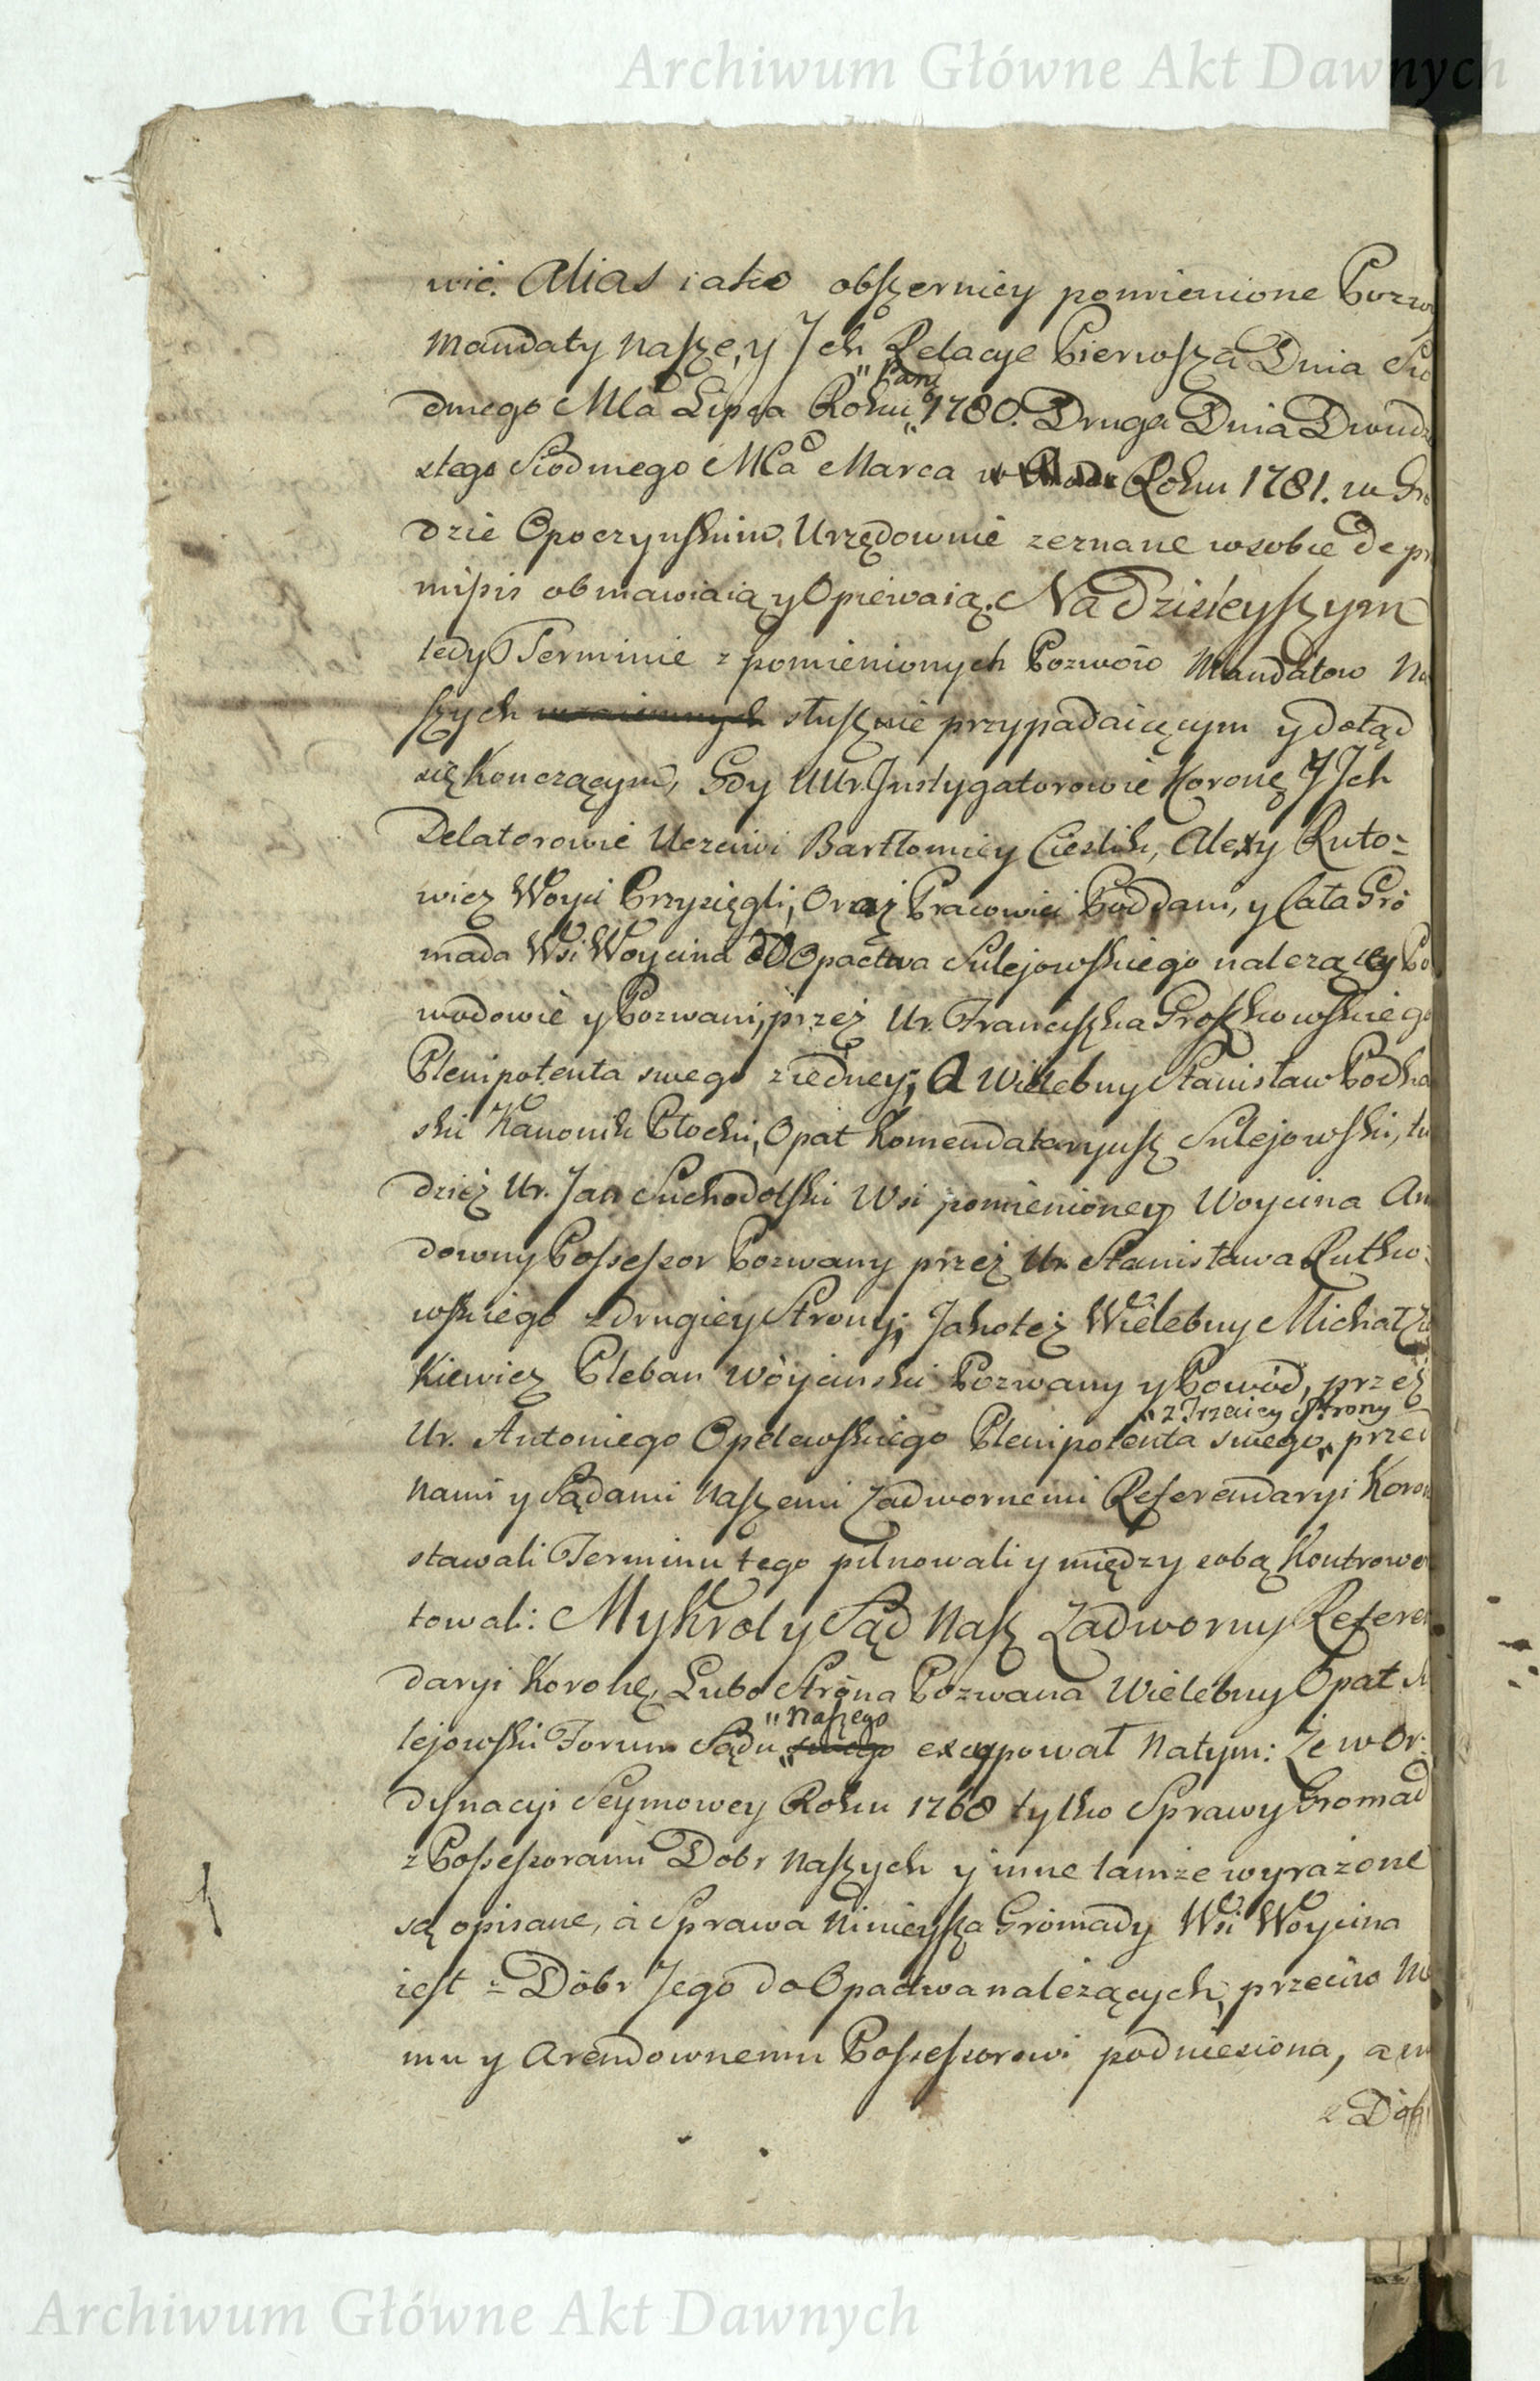 Archiwum Główne Akt Dawnych
wić. Alias iako obszerniey pomienione Pozw
Mandaty Nasze, y Jch Relacye Pierwsza Dnia Sio
"Pań
dmego Mca Lipca Roku „1780. Druga Dnia Dwudz
stego Siodmego Mca Marca w Roku 1781. w Gro
dzie Opoczynskim Urzędownie zeznane wsobie de pr
missis obmawiaią y Opiewaią. Na Dzisieyszym
tedy Terminie z pomienionych Pozwow Mandatow Na
szych wzaiemnych słusznie przypadaiącym y dotąd
się Konczącym, Gdy UUr. Jnstygatorowie Koronę. Y Jch
Delatorowie Uczciwi Bartłomiey Cieslik, Alexy Ruto=
wicz Woyci Przysięgli, Oraz Pracowici Poddani, y Cała Gro
mada Wsi Woycina do Opactwa Sulejowskiego nalezącey Po
wodowie y Pozwani, przez Ur. Franciszka Groszkowskiego
Plenipotenta swego z iedney; A Wielebny Stanisław Podka
ski Kanonik Płocki, Opat Komendataryusz Sulejowski, tu
dzież Ur. Jan Suchodolski Wsi pomienioney Woycina Arę
downy Possessor Pozwany przez Ur. Stanisława Rutko=
wskiego z drugiey Strony; Jakoteż Wielebny Michał
kiewicz Pleban Wóycinski Pozwany y Powód, przez
"z Trzeciey Strony
Ur. Antoniego Opelewskiego Plenipotenta swego„ przed
Nami y Sądami Naszemi Zadwornemi Referendaryi Koron
stawali Terminu tego pilnowali y między sobą Kontrower
towali: My Krol y Sąd Nasz Zadworny Referen
daryi Koronę. Lubo Strona Pozwana Wielebny Opat Su
"Naszego
lejowski Forum Sądu „swego excypował Natym: Że w Or=
dynacyi Seymowey Roku 1768 tylko Sprawy Gromad
z Possessorami Dobr Naszych y inne tamże wyrażone
są opisane, à Sprawa Ninieysza Gromady Wsi Woycina
iest z Dóbr Jego do Opactwa należących, przeciw Nie
mu y Arendownemu Possessorowi podniesiona, a w
z Dóbr
Archiwum Główne Akt Dawnych